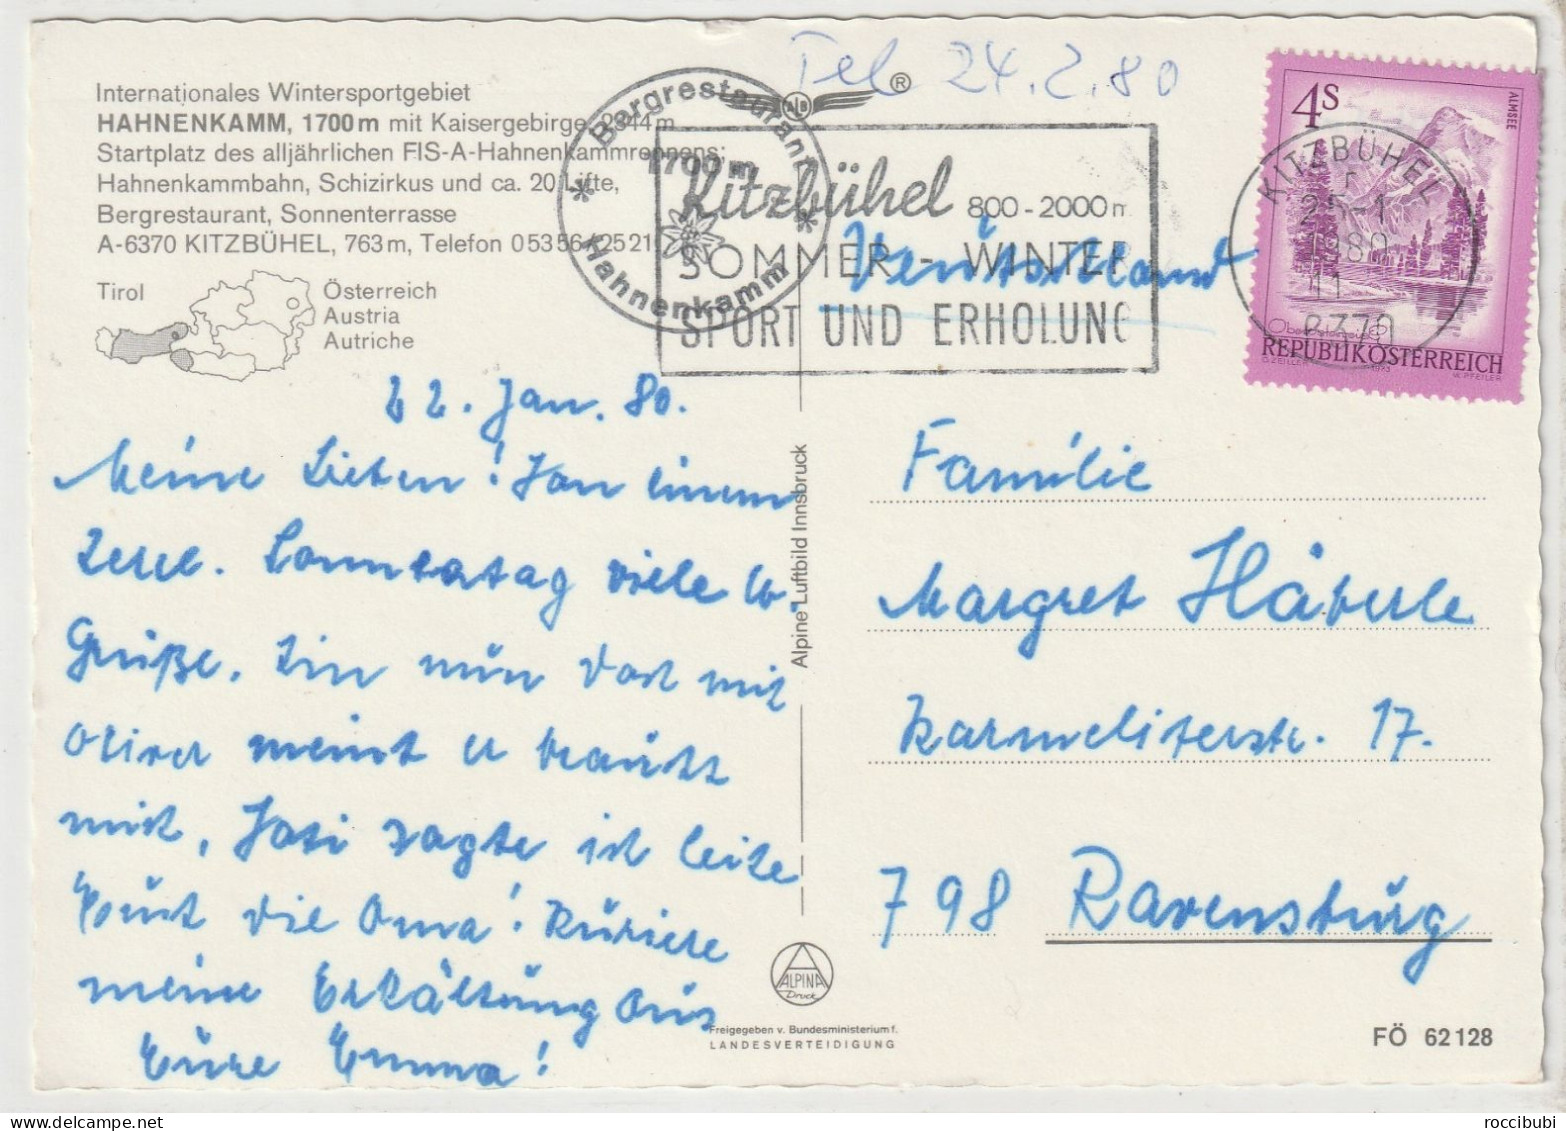 Internationales Wintersportgebiet
HAHNENKAMM, 1700 m mit Kaisergebirge, 2344 m
Startplatz des alljährlichen FIS-A-Hahnenkammrennens;
Hahnenkammbahn, Schizirkus und ca. 20 Lifte,
Bergrestaurant, Sonnenterrasse
A-6370 KITZBÜHEL, 763 m, Telefon 05356/2521
Tirol
Österreich
Austria
Autriche
Bergrestaurant
1700 m
Hahnenkamm
Tel 24.2.80
®
Kitzbühel 800-2000 m
SOMMER - WINTER
SPORT UND ERHOLUNG
4S
ALMSEE
REPUBLIK ÖSTERREICH
KITZBÜHEL
25.-1
1980
11
6370
22. Jan. 80.
Meine Lieben! Von einem
Sonnentag viele lb.
Grüße. Bin nun dort mit
Oliver meint er braucht
mich,
sagte ich leite
die Oma! Kuriere
meine Erkältung aus
Eure Emma!
Alpine Luftbild Innsbruck
ALPINA
Druck
Freigegeben v. Bundesministerium f.
LANDESVERTEIDIGUNG
Familie
Margret Häberle
Karmeliterstr. 17.
798 Ravensburg
FÖ 62128
roccibubi